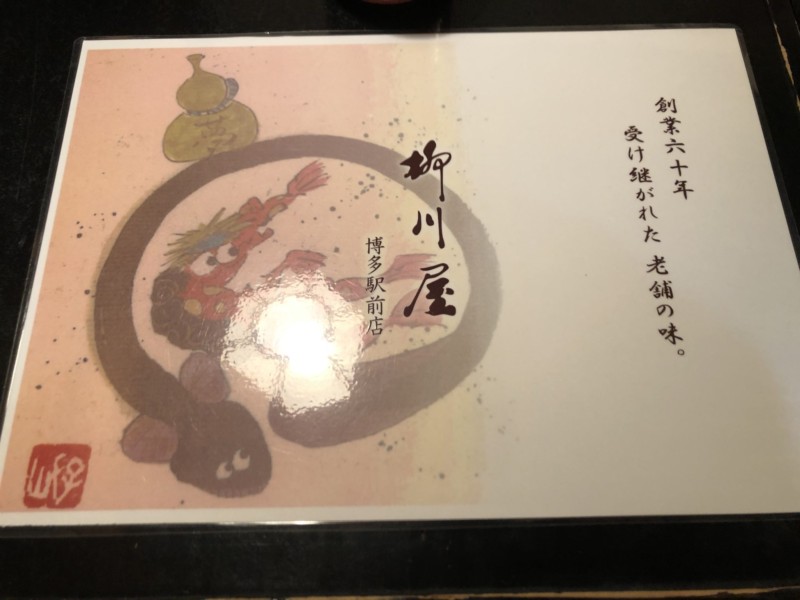 創業六十年
受け継がれた老舗の味。
柳川屋
博多駅前店